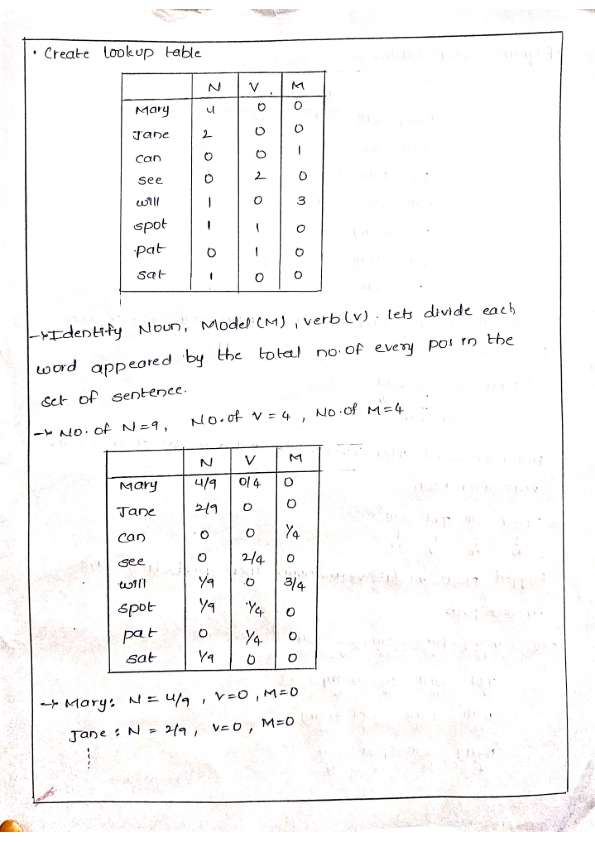 • Create lookup table
N V M
Mary 4 0 0
Jane 2 0 0
can 0 0 1
see 0 2 0
will 1 0 3
spot 1 1 0
pat 0 1 0
sat 1 0 0
→ Identify Noun, Model(M), verb(v). lets divide each
word appeared by the total no. of every pos in the
set of sentence.
→ No. of N=9, No. of V = 4, No. of M=4
N V M
Mary 4/9 0/4 0
Jane 2/9 0 0
can 0 0 1/4
see 0 2/4 0
will 1/9 0 3/4
spot 1/9 1/4 0
pat 0 1/4 0
sat 1/9 0 0
→ Mary: N = 4/9, V=0, M=0
Jane : N = 2/9, V=0, M=0